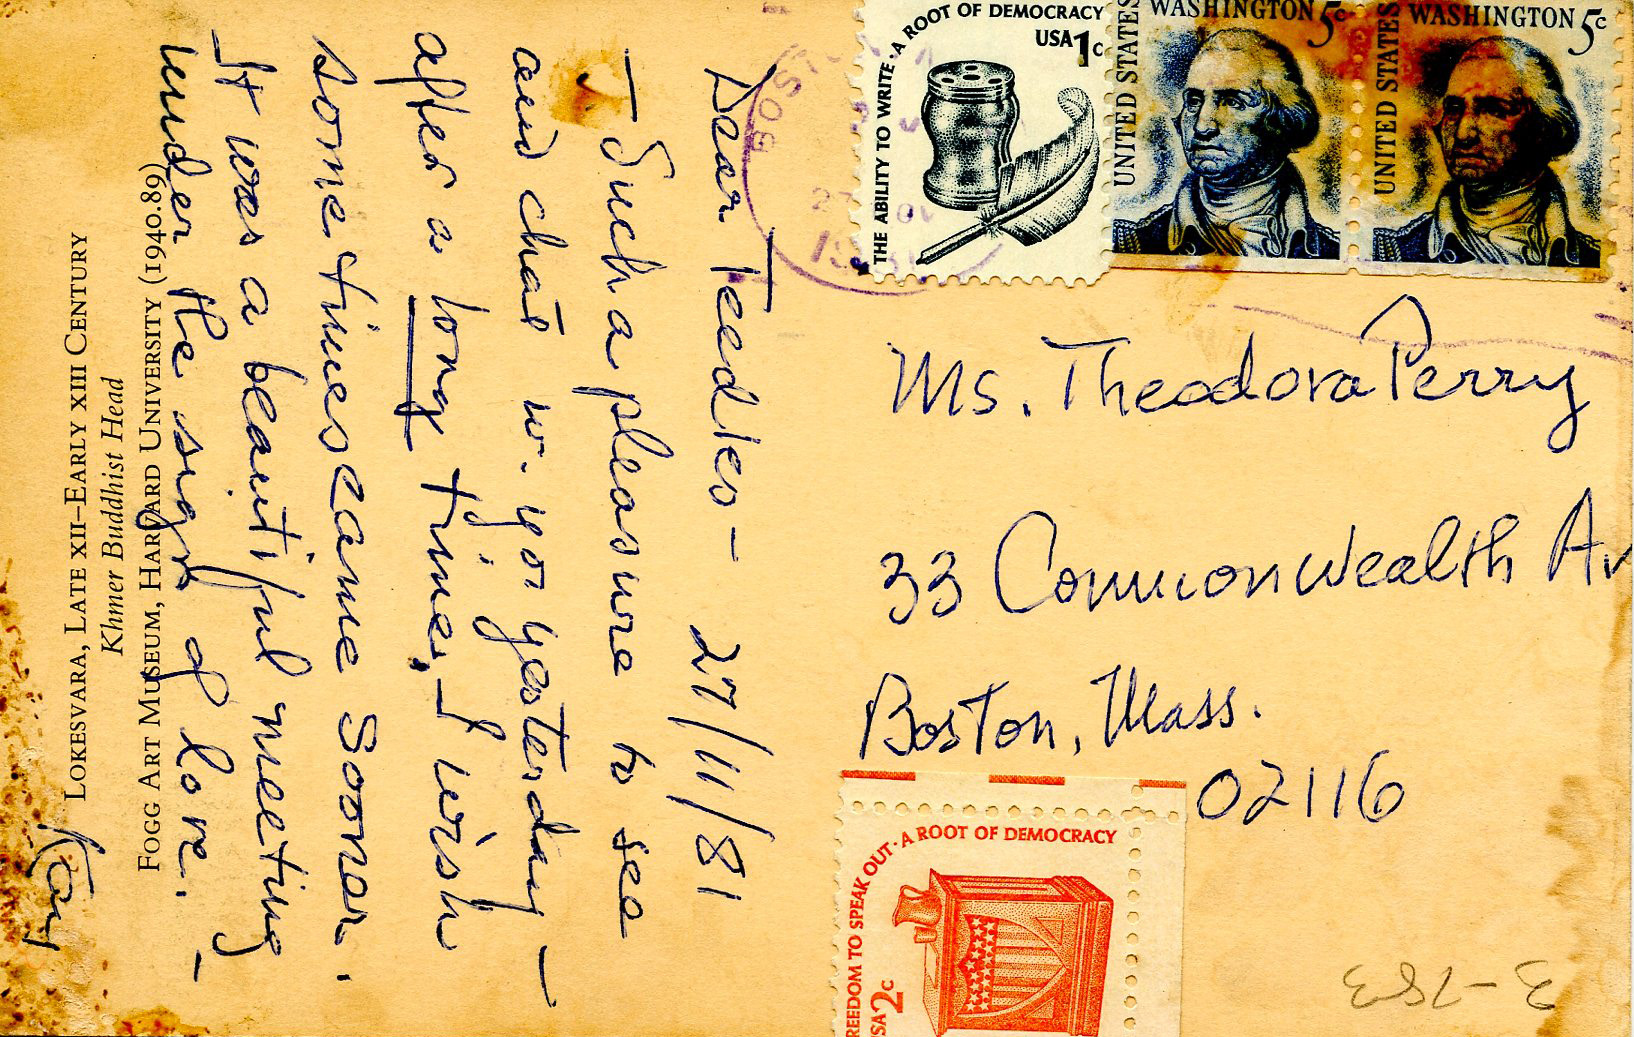 Dear Teedles- 27/11/81
Such a pleasure to see
and chat w. you yesterday -
after a long time, I wish
some times came sooner.
It was a beautiful meeting -
under the sign of love.
Kay
LOKESVARA, LATE XII–EARLY XIII CENTURY
Khmer Buddhist Head
FOGG ART MUSEUM, HARVARD UNIVERSITY (1940.89)
THE ABILITY TO WRITE · A ROOT OF DEMOCRACY
USA 1c
UNITED STATES
WASHINGTON 5c
UNITED STATES
WASHINGTON 5c
BOSTON
27
Ms. Theodora Perry
33 Commonwealth Av
Boston, Mass.
02116
REEDOM TO SPEAK OUT · A ROOT OF DEMOCRACY
SA 2c